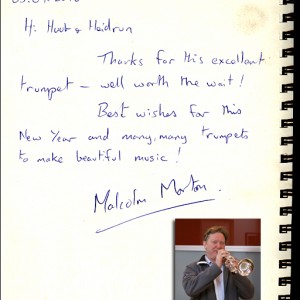 Hi Hub & Heidrun
Thanks for this excellent
trumpet – well worth the wait!
Best wishes for this
New Year and many, many trumpets
to make beautiful music!
Malcolm Morton.